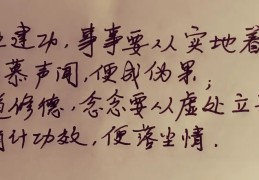 建功，事事要从实地着
慕声闻，便成伪果；
道修德，念念要从虚处立
计功效，便落尘情．